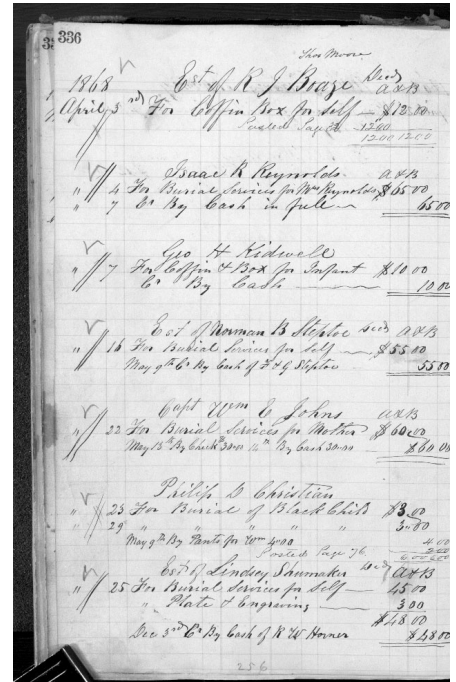 336
Thos Moore
1868 Est of R J Booze Decd A&B
April 3rd For Coffin Box for Self — $12.00
Posted Page 1200
1200 1200
Isaac R Reynolds A&B
" 4 For Burial Services for Wm Reynolds $65 00
" 7 Cr By Cash in full 65 00
Geo H Kidwell
" 7 For Coffin & Box for Infant $10 00
Cr By Cash 10 00
Est of Norman B Steptoe Decd A&B
" 16 For Burial Services for Self $55 00
May 9th Cr By Cash of F & G Steptoe 55 00
Capt Wm E Johns A&B
" 22 For Burial Services for Mother $60.00
May 15th By Check 30.00 By Cash 30.00 $60.00
Philip D Christian
" 23 For Burial of Black Child $3.00
" 29 " " " " 3.00
May 9th By Pants for Wm 4.00 4.00
Posted Page 76 2 00
6.00 6.00
Est of Lindsey Shumaker Decd A&B
" 25 For Burial Services for Self — 45 00
" Plate & Engraving 3 00
$48.00
Dec 3rd Cr By Cash of R W Horner $48 00
256